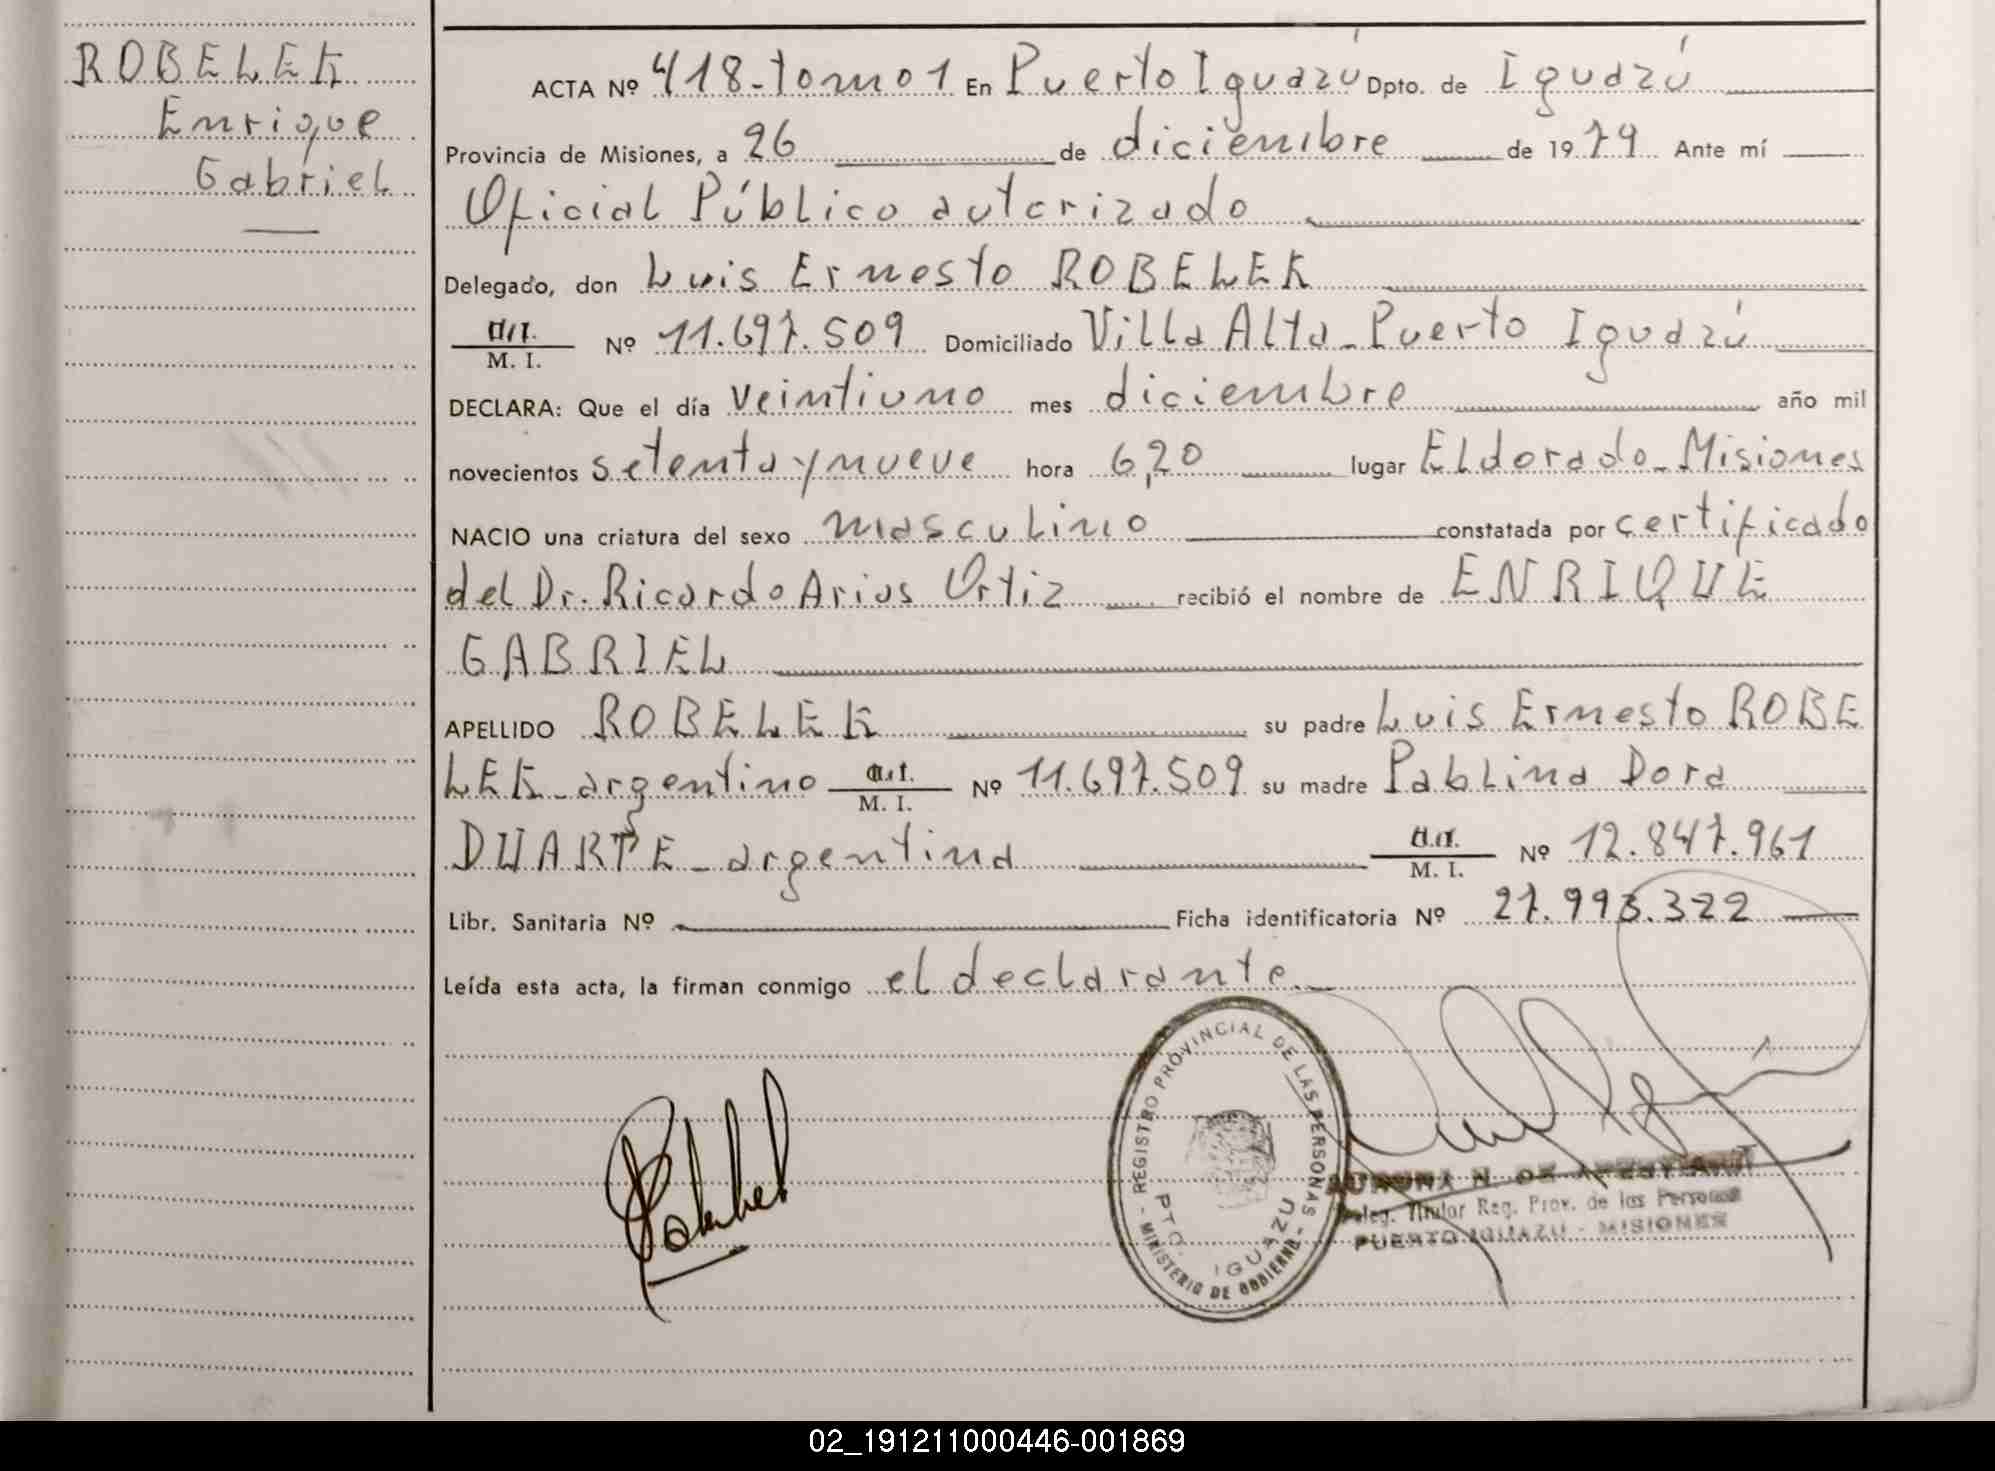 ROBELEK
Enrique
Gabriel
ACTA Nº 418-tomo1 En Puerto Iguazú Dpto. de Iguazú
Provincia de Misiones, a 26 de diciembre de 1979 Ante mí
Oficial Público autorizado
Delegado, don Luis Ernesto ROBELEK
M. I. Nº 11.697.509 Domiciliado Villa Alta-Puerto Iguazú
DECLARA: Que el día veintiuno mes diciembre año mil
novecientos setenta y nueve hora 6,20 lugar Eldorado-Misiones
NACIO una criatura del sexo masculino constatada por certificado
del Dr. Ricardo Arias Ortiz recibió el nombre de ENRIQUE
GABRIEL
APELLIDO ROBELEK su padre Luis Ernesto ROBE
LEK-argentino M. I. Nº 11.697.509 su madre Pablina Dora
DUARTE-argentina M. I. Nº 12.847.961
Libr. Sanitaria Nº Ficha identificatoria Nº 27.993.322
Leída esta acta, la firman conmigo el declarante.
REGISTRO PROVINCIAL DE LAS PERSONAS - MINISTERIO DE GOBIERNO -
PTO. IGUAZU
Deleg. Titular Reg. Prov. de las Personas
PUERTO IGUAZU - MISIONES
02_191211000446-001869